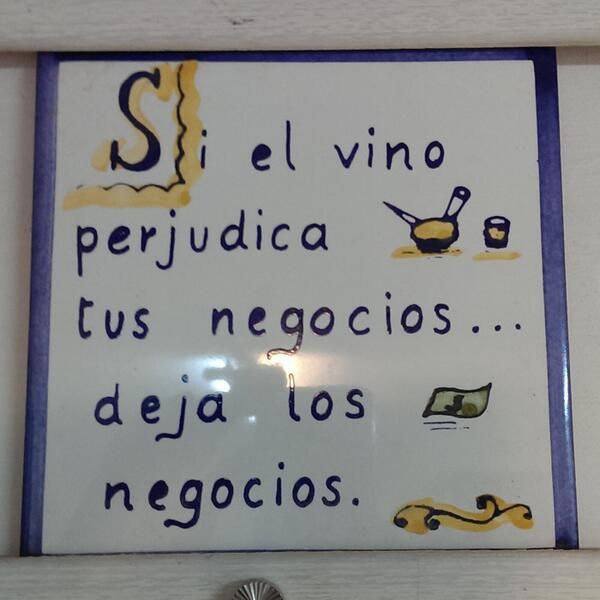 Si el vino
perjudica
tus negocios...
deja los
negocios.